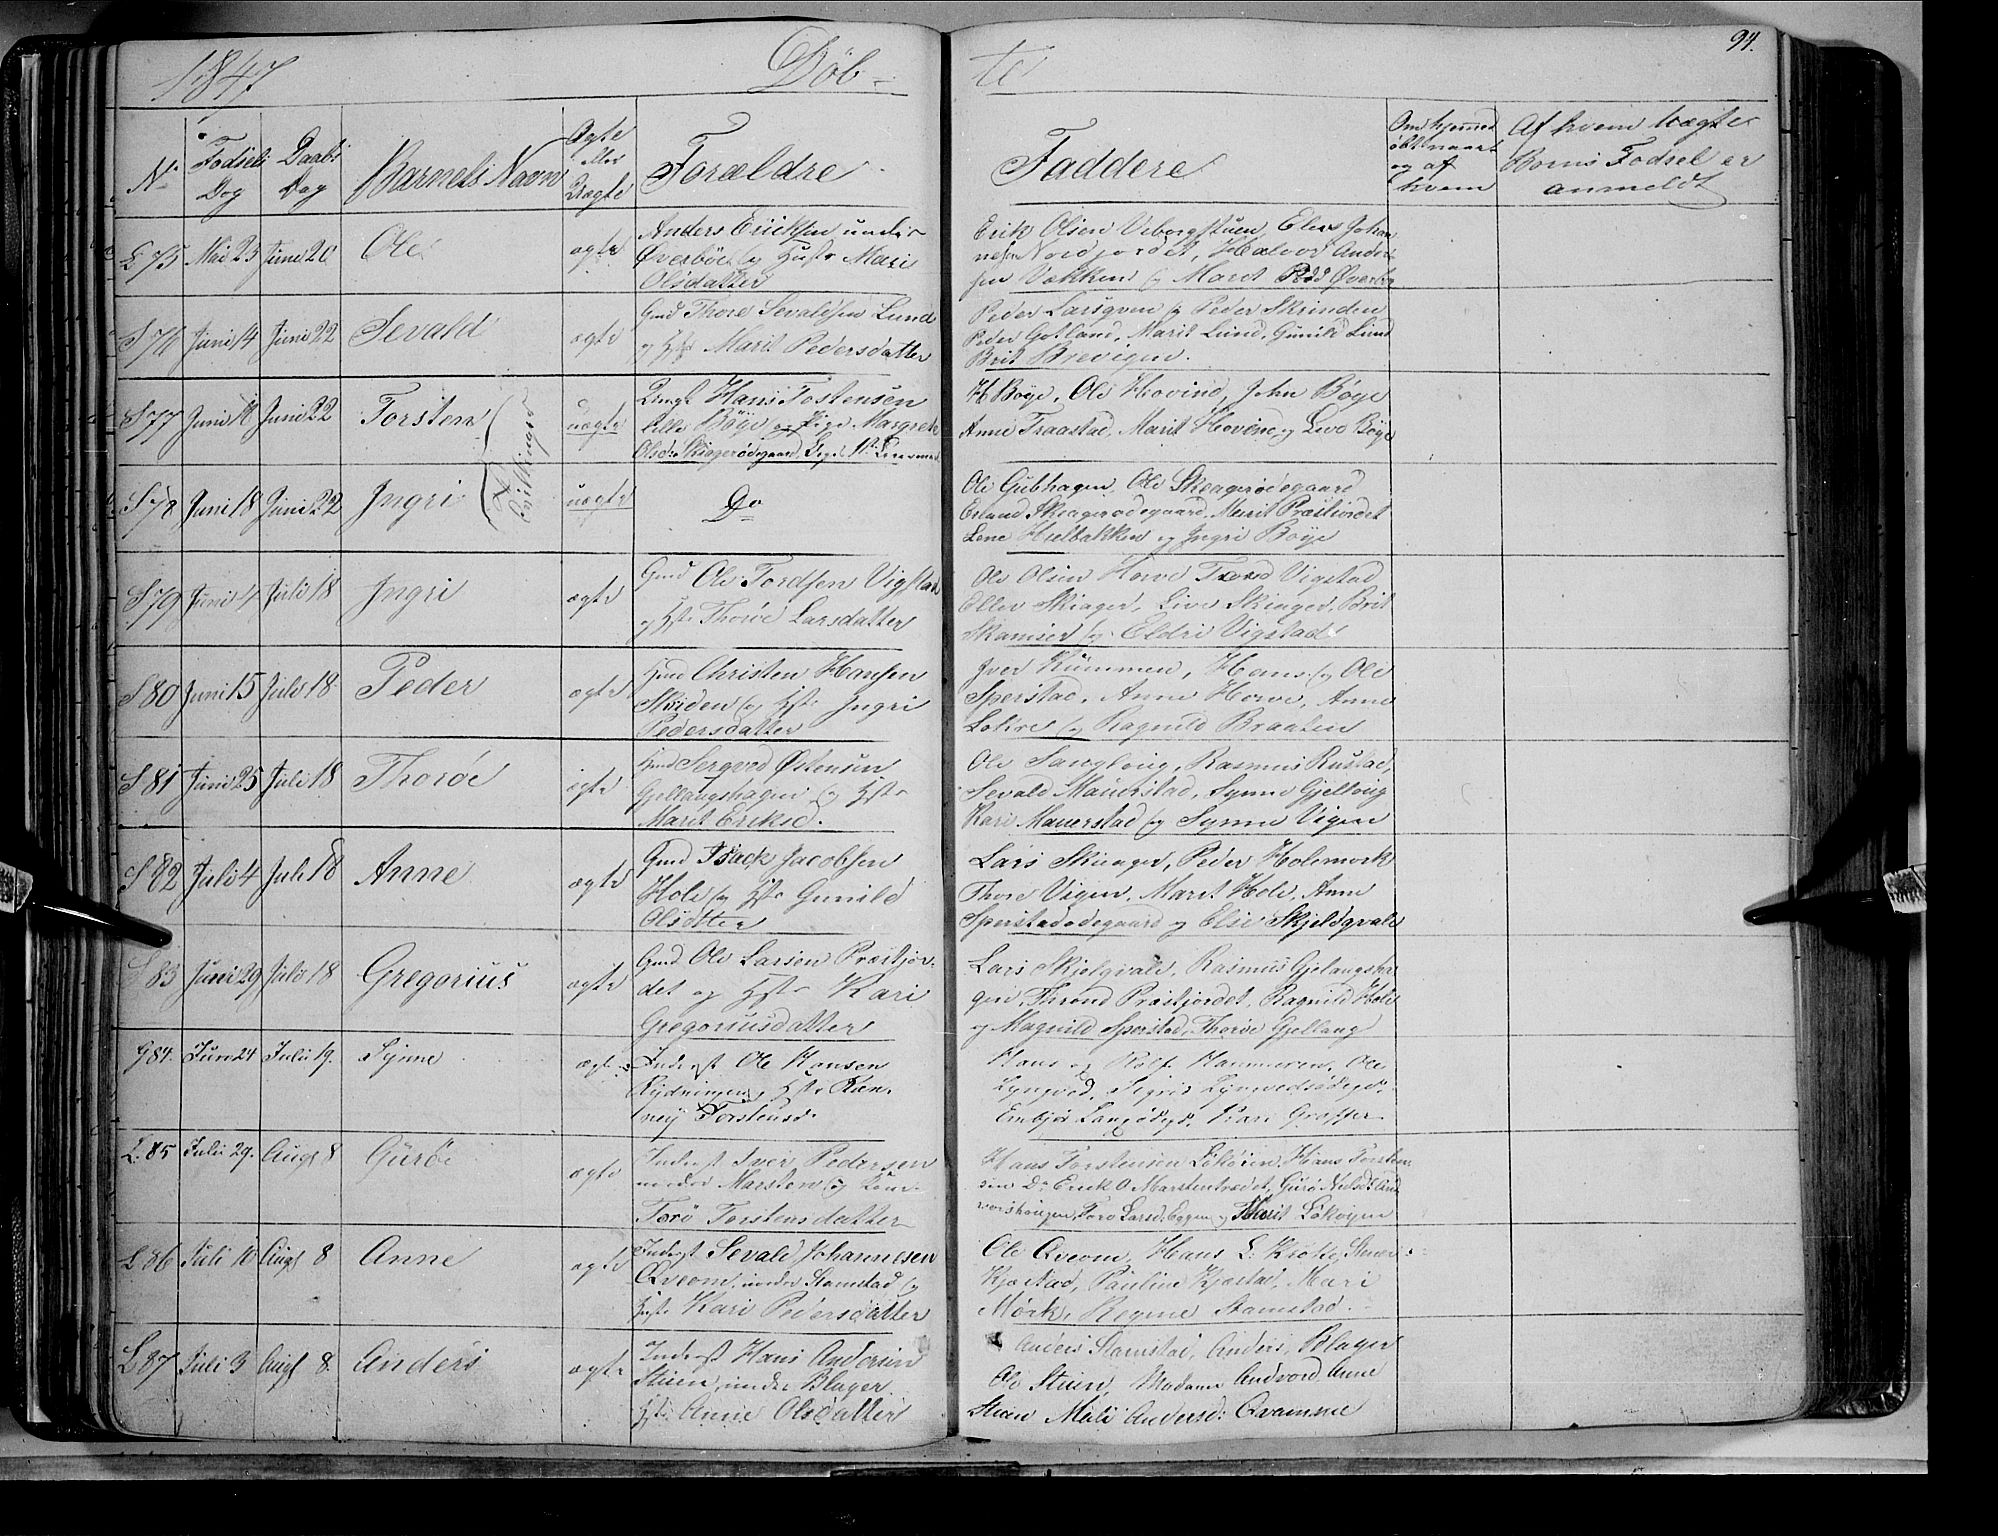 1847 Døb- te 94.
No. Fødsels Dag Daabs Dag Barnets Navn Ægte eller Uægte Forældre Faddere Om hjemmedøbt naar og af hvem Af hvem uægte Borns Fødsel er anmeldt
L 75 Mai 23 Juni 20 Ole ægte Anders Ericksen under
Øverbøe og Hustr Mari
Olsdatter
Erik Olsen Viborgstuen, Elias Johan
nesen Nordjordet, Halvor Ander
sen Vekken og Marit Øverbø
S 76 Juni 4 Juni 22 Sevald ægte Gmd Thore Sevaldsen Lund
og Hst Marit Pedersdatter
Peder Larsgven og Peder Skrinden
Peder Gotland, Marit Lund, Gunild Lund
Brit Brevigen.
S 77 Juni 18 Juni 22 Torsten Tvillinger uægte Ungk Hans Tostensen
Lille Bøye og Pige Margrete
Olsd: Skiagerødegaard,
H Bøye, Ole Hovind, John Bøye
Anne Traastad, Marit Hovine og Live Bøye
S 78 Juni 18 Juni 22 Ingri uægte Do
Ole Gubhagen, Ole Skeagerødegaard
Erland Skeagerødegaard, Marit Præstjordet
Lene Hielbakken og Ingri Bøye
S 79 Juni 4 Juli 18 Ingri ægte Gmd Ole Tordsen Vigstad
og Hst Thorøe Larsdatter
Ole Olsen Horve Tord Vigstad
Ellev Skiager, Live Skiager, Brit
Skamser og Eldri Vigstad
S 80 Juni 15 Juli 18 Peder ægte Gmd Christen Hansen
Skriden og Hst Ingri
Pedersdatter
Iver Kummen, Hans og Ole
Sperstad, Anne Horve, Anne
Løkre og Ragnild Braaten
S 81 Juni 25 Juli 18 Thorøe ægte Gmd Sergved Østensen
Gjellaugshagen og Hst
Marit Eriksd.
Ole Rasmus Rustad,
Sevald Maurstad, Synne Gjellaug
Kari Maurstad og Synne Vigen
S 82 Juli 4 Juli 18 Anne ægte Gmd Isack Jacobsen
Hole og Hst Gunild
Olsdtter
Lars Skiager, Peder Holemork
Thore Vigen, Marit Hole, Anne
Sperstadødegaard og Elsi Skjeldqvale
S 83 Juni 29 Juli 18 Gregorius ægte Gmd Ole Larsen Præstjor-
det og Hst Kari
Gregoriusdatter
Lars Skjelqvale, Rasmus Gjelaugsha
gen, Thrond Præstjordet, Ragnild Hole
og Magnild Sperstad, Thorøe Gjellaug
G 84. Juni 24 Juli 19. Synne ægte Inderst Ole Hansen
Rydningen, Hst Ron-
nej Torstensd.
Hans og Rolf Hammeren, Ole
Lyngved, Sigrid Lyngvedsødegd.
Embjør Kari Graffer
L. 85 Juli 29. Augt 8 Gurøe ægte Inderst Iver Pedersen
nordre Marsten og Kone
Torø Torstensdatter
Hans Torstensen Løkøien, Hans Torsten
sen Do Erick O Marstentrædet, Gurø Nielsd:
Toro Larsd: Eggen og Marit Løkøyen
L 86 Juli 10 Augt 8 Anne ægte Inderst Sevald Johannesen
Qveom, under Stamstad og
Hst Kari Pedersdatter
Ole Qveom, Hans L: Krøke,
Kjæstad, Pauline Kjæstad, Mari
Mørk, Regine Stamstad.
L 87 Juli 3 Augt 8. Anders ægte Inderst Hans Andersen
Stuen, under Blager.
Hst Anne Olsdatter
Anders Stamstad, Anders Blager
Ole Stuen, Madame Andvord, Anne
Stuen Mali Andersd: Qvamme